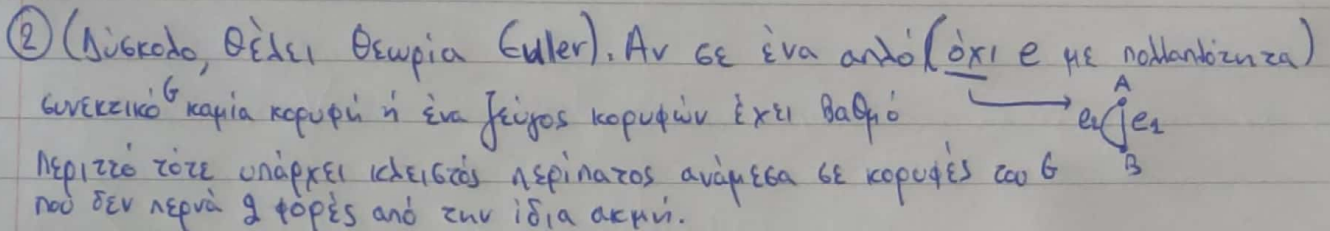 ② (Δύσκολο, θέλει θεωρία Euler). Αν σε ένα απλό (όχι e με πολλαπλότητα)
συνεκτικό G καμία κορυφή ή ένα ζεύγος κορυφών έχει βαθμό
περιττό τότε υπάρχει κλειστός περίπατος ανάμεσα σε κορυφές του G
που δεν περνά 2 φορές από την ίδια ακμή.
A
e₂ e₁
B